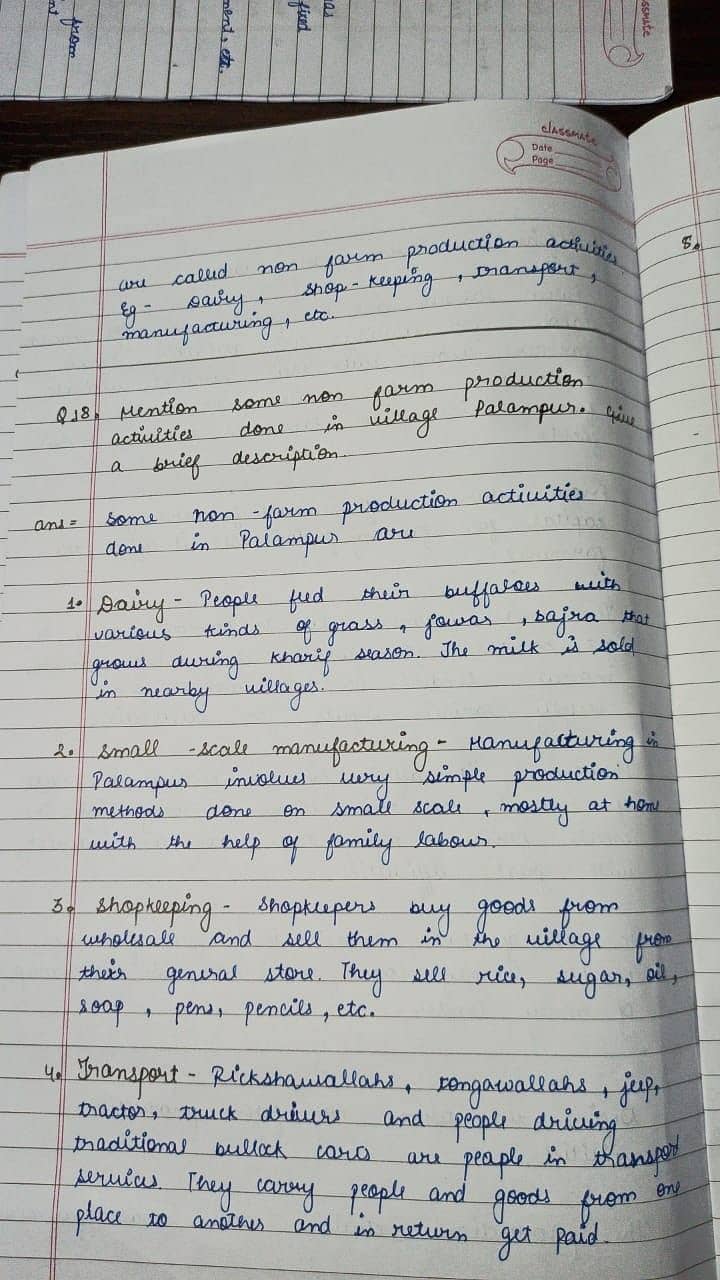 from
ment, etc.
fixed
has
classmate
Date
Page
are called non farm production activities.
Eg - Dairy, shop-keeping, transport,
manufacturing, etc.
8.
Q18. Mention some non farm production
activities done in village Palampur. Give
a brief description.
ans= Some non-farm production activities
done in Palampur are
1. Dairy - People fed their buffaloes with
various kinds of grass, jowar, bajra that
grows during kharif season. The milk is sold
in nearby villages.
2. Small-scale manufacturing - Manufacturing in
Palampur involves very simple production
methods done on small scale, mostly at home
with the help of family labour.
3. Shopkeeping - Shopkeepers buy goods from
wholesale and sell them in the village from
their general store. They sell rice, sugar, oil,
soap, pens, pencils, etc.
4. Transport - Rickshawallahs, tongawallahs, jeep,
tractor, truck drivers and people driving
traditional bullock carts are people in transport
services. They carry people and goods from one
place to another and in return get paid.